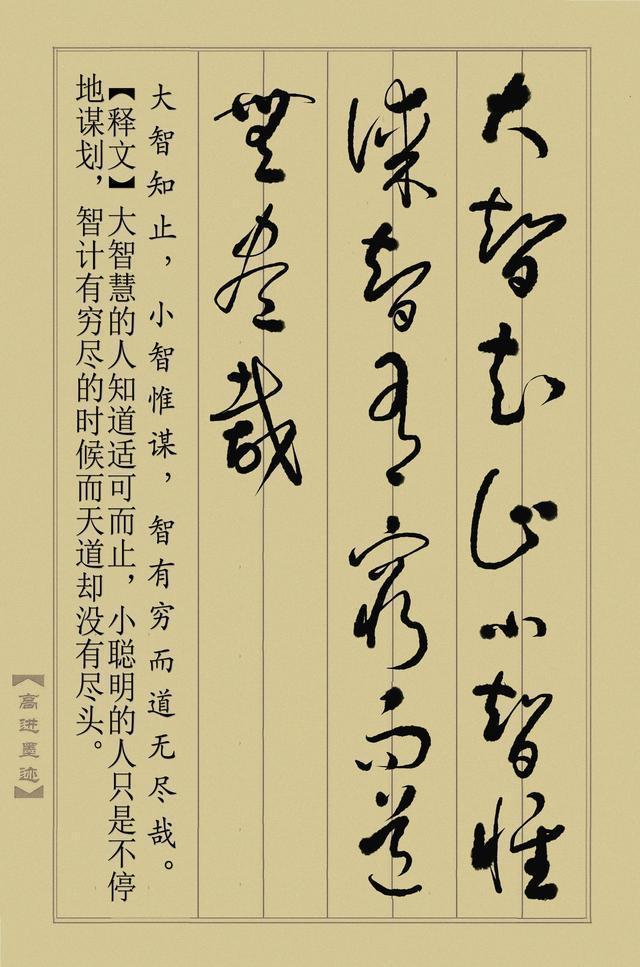 大智知止小智惟
谋智有窮而道
無盡哉
大智知止，小智惟谋，智有穷而道无尽哉。
【释文】大智慧的人知道适可而止，小聪明的人只是不停
地谋划，智计有穷尽的时候而天道却没有尽头。
【高进墨迹】